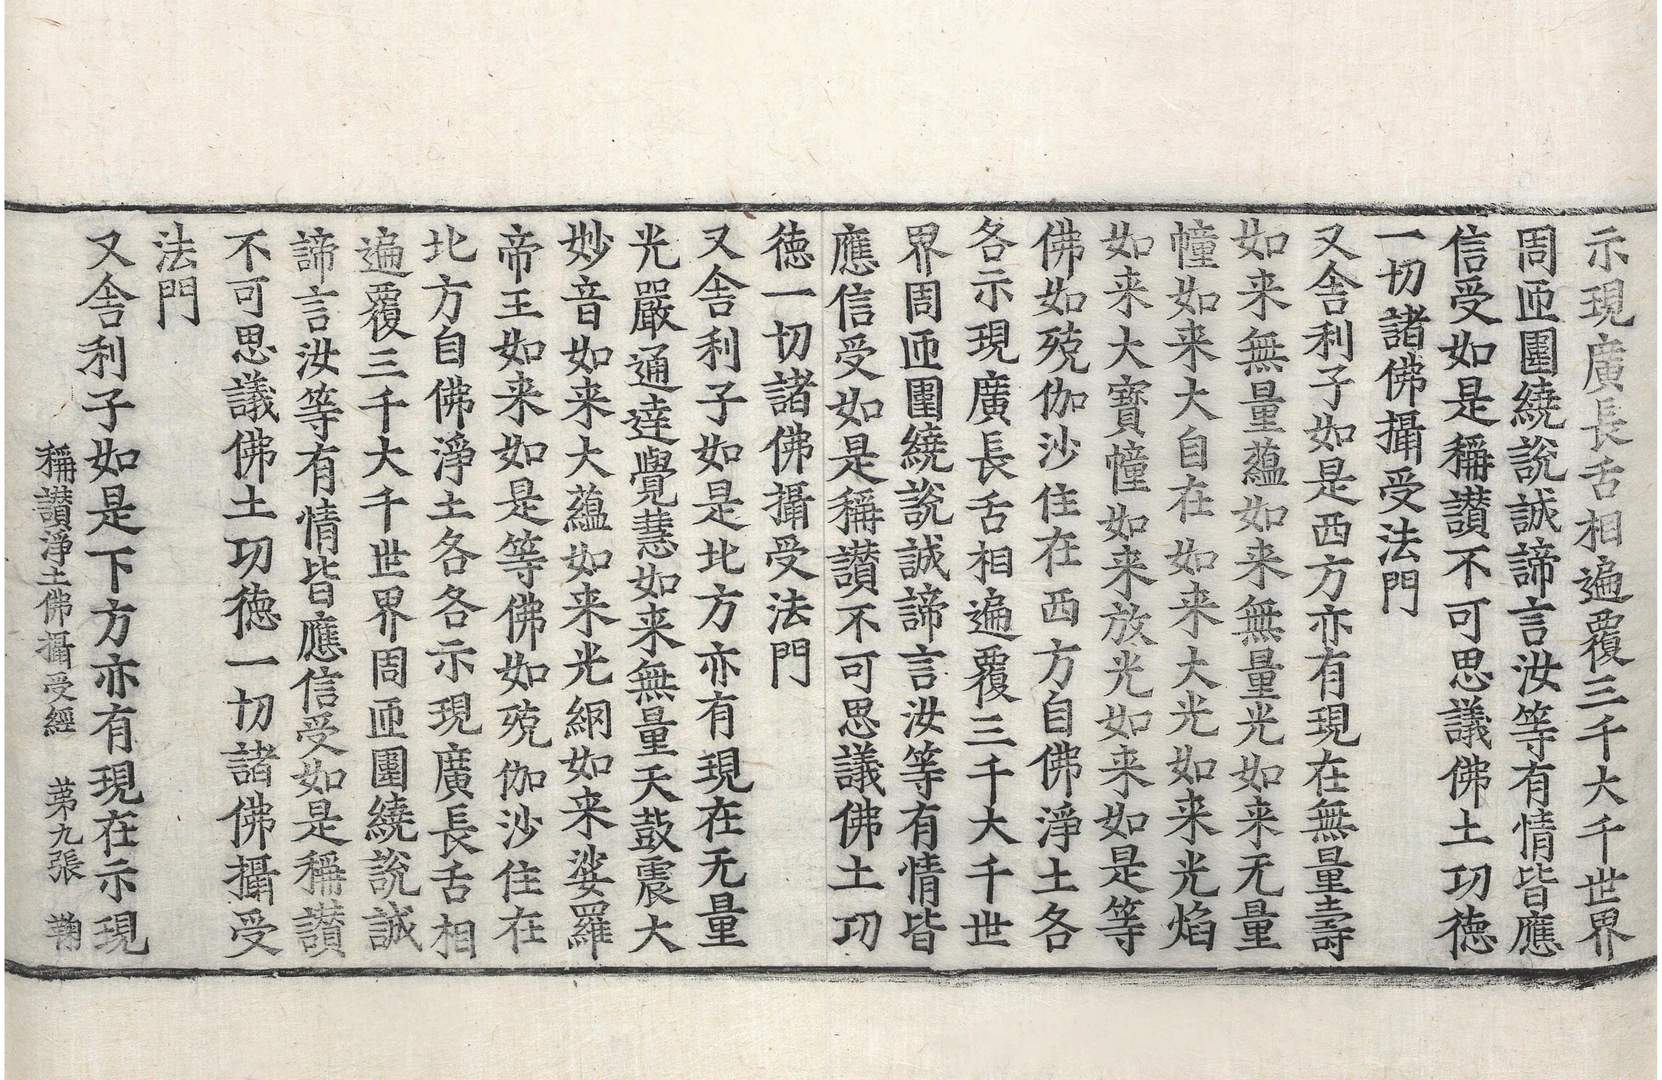 示現廣長舌相遍覆三千大千世界
周匝圍繞說誠諦言汝等有情皆應
信受如是稱讃不可思議佛土功德
一切諸佛攝受法門
又舍利子如是西方亦有現在無量壽
如来無量蘊如来無量光如来无量
幢如来大自在如来大光如来光焰
如来大寶幢如来放光如来如是等
佛如殑伽沙住在西方自佛淨土各
各示現廣長舌相遍覆三千大千世
界周匝圍繞說誠諦言汝等有情皆
應信受如是稱讃不可思議佛土功
德一切諸佛攝受法門
又舍利子如是北方亦有現在无量
光嚴通達覺慧如来無量天鼓震大
妙音如来大蘊如来光網如来娑羅
帝王如来如是等佛如殑伽沙住在
北方自佛淨土各各示現廣長舌相
遍覆三千大千世界周匝圍繞說誠
諦言汝等有情皆應信受如是稱讃
不可思議佛土功德一切諸佛攝受
法門
又舍利子如是下方亦有現在示現
稱讃淨土佛攝受經 第九張 鞠